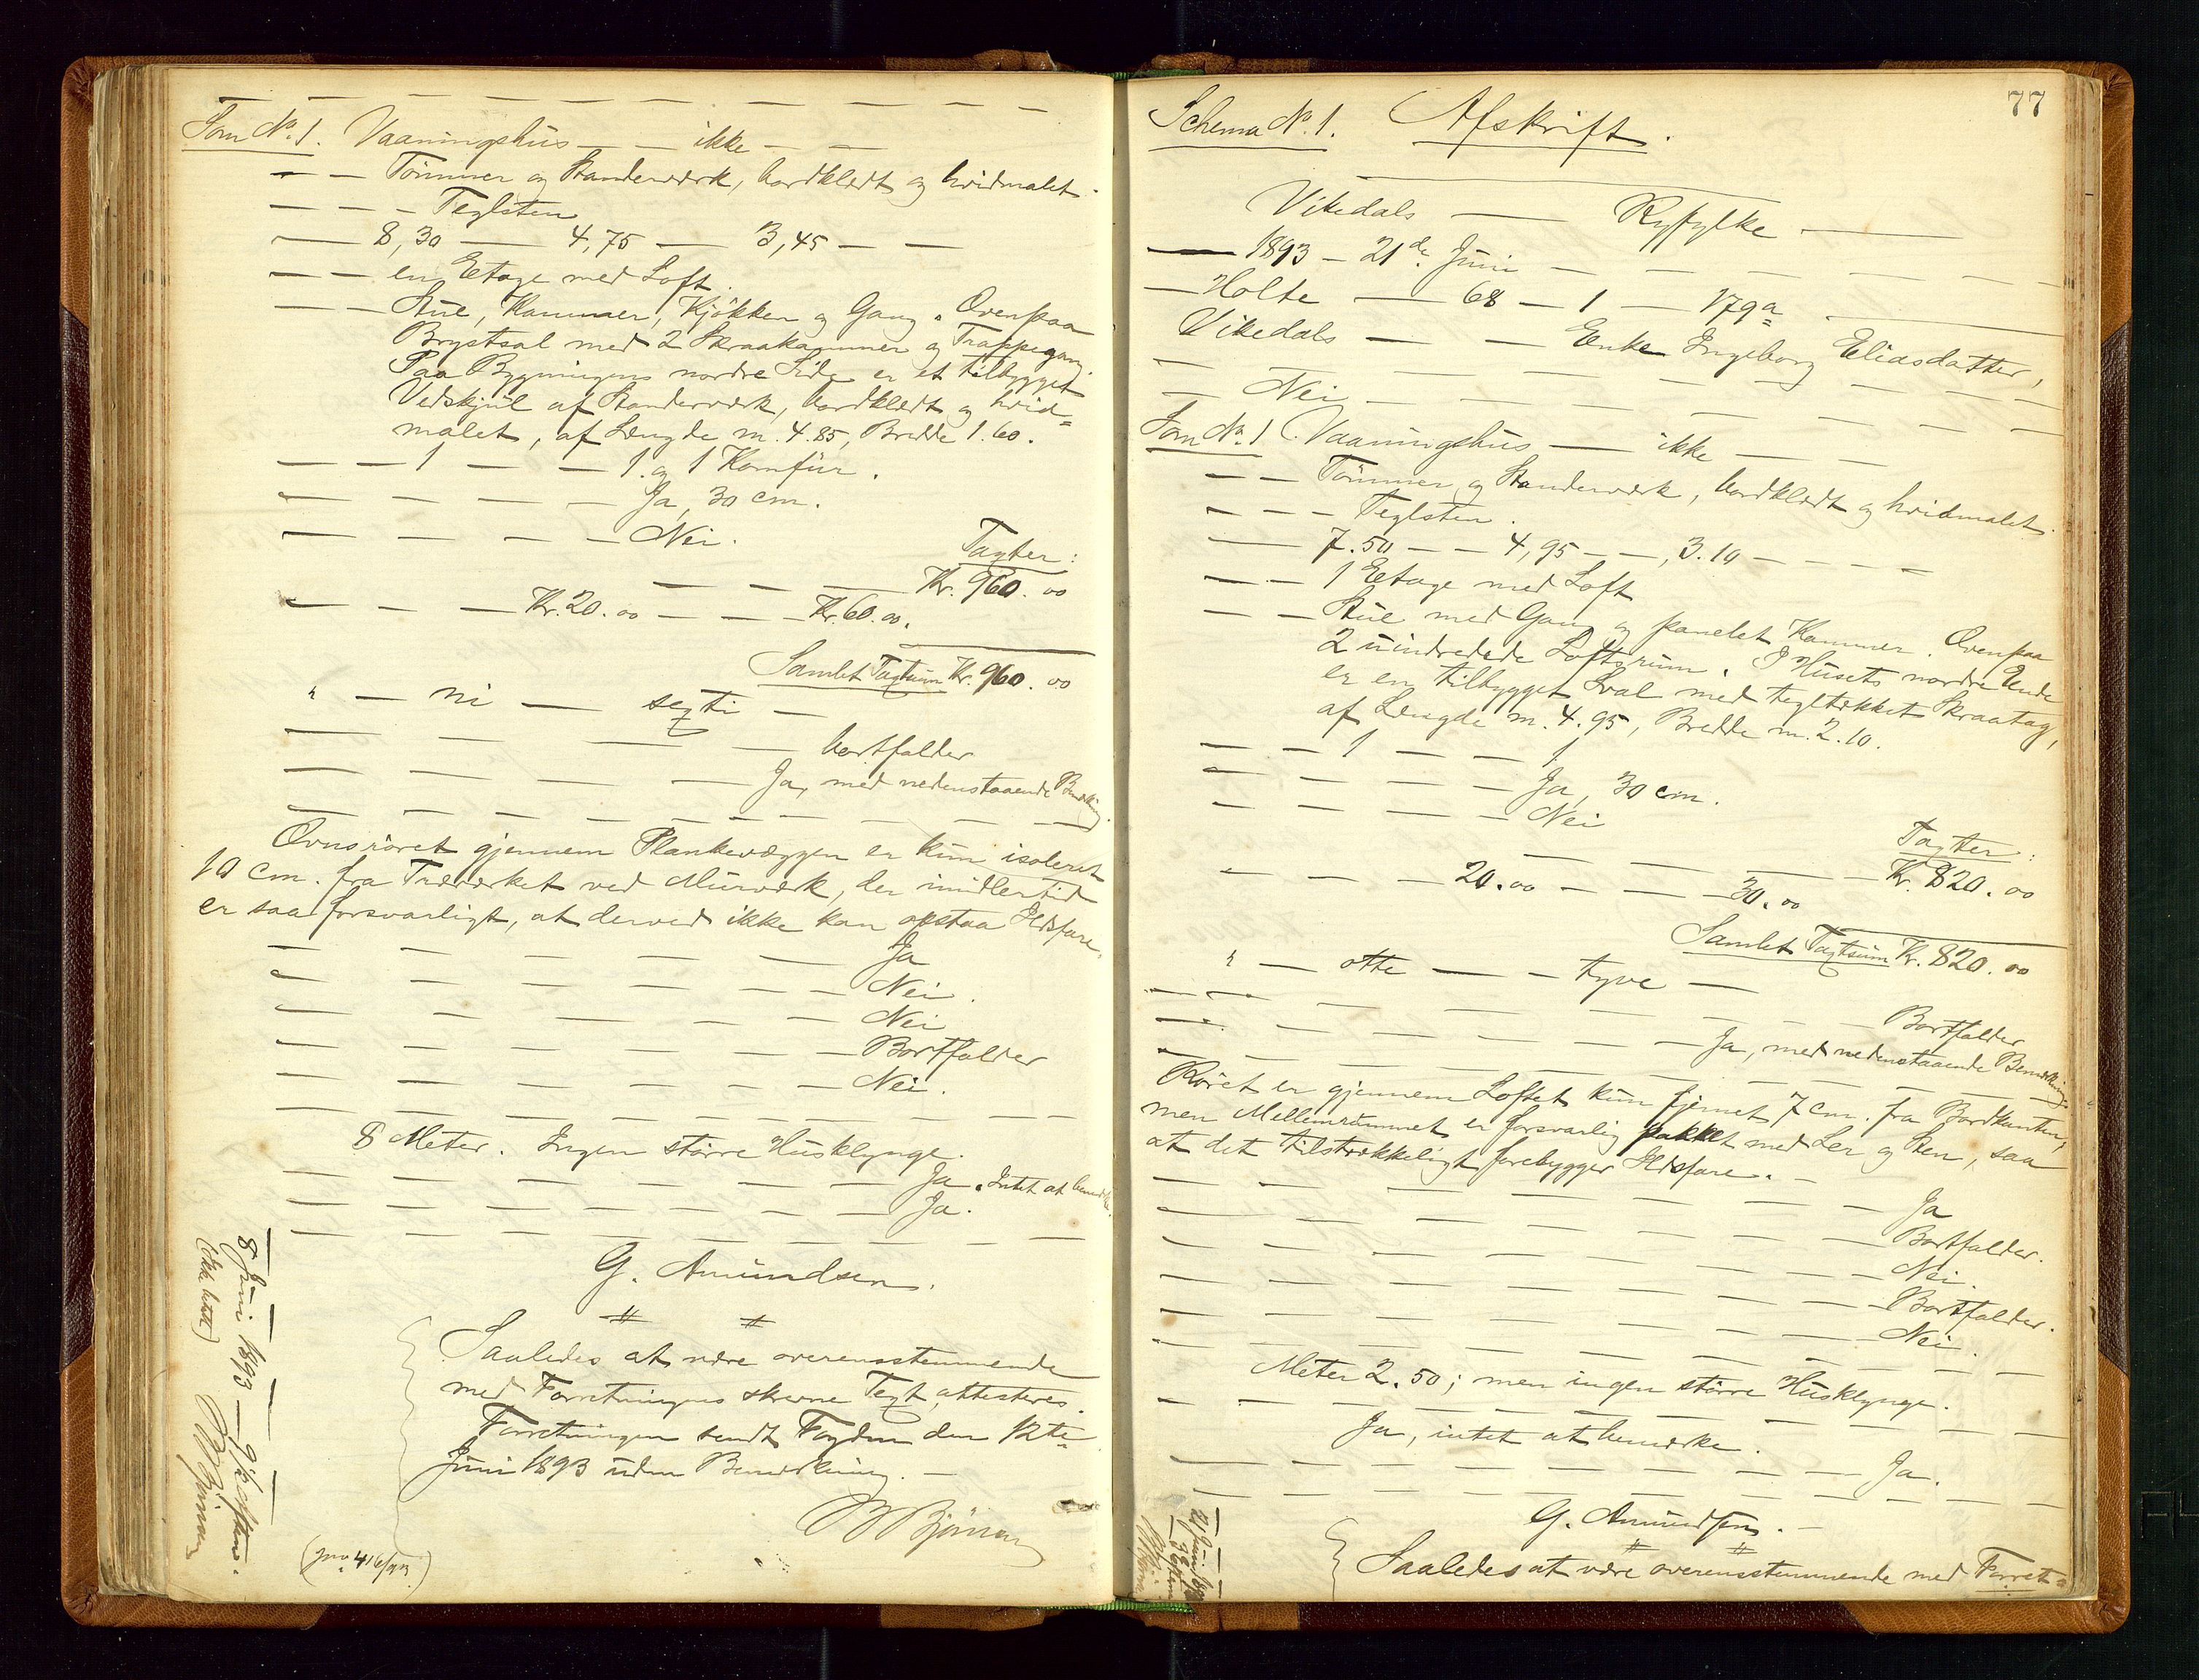 Som No. 1. Vaaningshus — — ikke — —
— — Tömmer og Standerværk, bordklædt og hvidmalet.
— — — Teglsten
— 8,30 — 4,75 — 3,45 — —
— — en Etage med Loft.
— — Stue, Kammer, Kjökken og Gang. Ovenpaa
Brystsal med 2 Skraakammer og Trappegang.
Paa Bygningens nordre Side er et tilbygget
Vedskjul af Standerværk, bordklædt og hvid=
malet, af Længde m. 4.85, Bredde 1.60.
— — 1 — — 1 og 1 Komfür.
— — — — — Ja, 30 cm.
— — — — — Nei.
Taxter:
— — — Kr. 960.00
— — — Kr. 20.00 — — — Kr. 60.00.
Samlet Taxtsum Kr. 960.00
" — ni — sexti —
— — — — — bortfalder
— — — — — Ja, med nedenstaaende Bemærkning.
— — — — — — — — —
Ovnsröret gjennem Plankevæggen er kun isoleret
10 cm. fra Træværket ved Murværk, der imidlertid
er saa forsvarligt, at derved ikke kan opstaa Ildsfare.
— — — — — — Ja
— — — — — — Nei.
— — — — — — Nei
— — — — — — Bortfalder
— — — — — — Nei.
— — — — — — — —
8 Meter. Ingen större Husklynge.
— — — — — — Ja. Intet at bemærke.
— — — — — — Ja.
— — — — — — — —
G. Amundsen.
Saaledes at være overensstemmende
med Forretningens skrevne Text, attesteres.
Forretningen sendt Fogden den 12te
Juni 1893 uden Bemærkning. —
(jno 416/93)
8 Juni 1893 — 9
77
Schema No. 1. Afskrift.
Vikedals — Ryfylke —
— 1893 — 21de Juni — — — — —
— Holte — 68 — 1 — 179a —
Vikedals — — Enke Ingeborg Eliasdatter,
— — — — — — — — —
— Nei — — — — — — —
Som No. 1 Vaaningshus — ikke — —
— — Tömmer og Standerværk, bordklædt og hvidmalet.
— — — Teglsten.
— 7.50 — — 4,95 — —, 3.10 — — — —
— — 1 Etage med Loft
— — Stue med Gang og panelet Kammer. Ovenpaa
2 uindredede Loftsrum. I Husets nordre Ende
er en tilbygget Sval med tegltækket Skraatag,
af Længde m. 4.95, Bredde m. 2.10.
— — 1 — — 1
— — — — — Ja, 30 cm.
— — — — — Nei
Taxter:
— — — — Kr. 820.00
— — — 20.00 — — — 30.00
Samlet Taxtsum Kr. 820.00
" — otte — — tyve —
— — — — — — Bortfalder
— — — — — — Ja, med nedenstaaende Bemærkning.
— — — — — — — — —
Röret er gjennem Loftet kun fjernet 7 cm. fra Bordkanten,
men Mellemrummet er forsvarlig pakket med Ler og Sten, saa
at det tilstrækkeligt forebygger Ildsfare. —
— — — — — — — Ja
— — — — — — — Bortfalder.
— — — — — — — Nei.
— — — — — — — Bortfalder.
— — — — — — — Nei.
— — — — — — — — —
Meter 2.50; men ingen större Husklynge.
— — — — — — — — —
Ja, intet at bemærke.
— — — — — — — — Ja.
— — — — — — — — —
G. Amundsen. —
Saaledes at være overensstemmende med Forret=